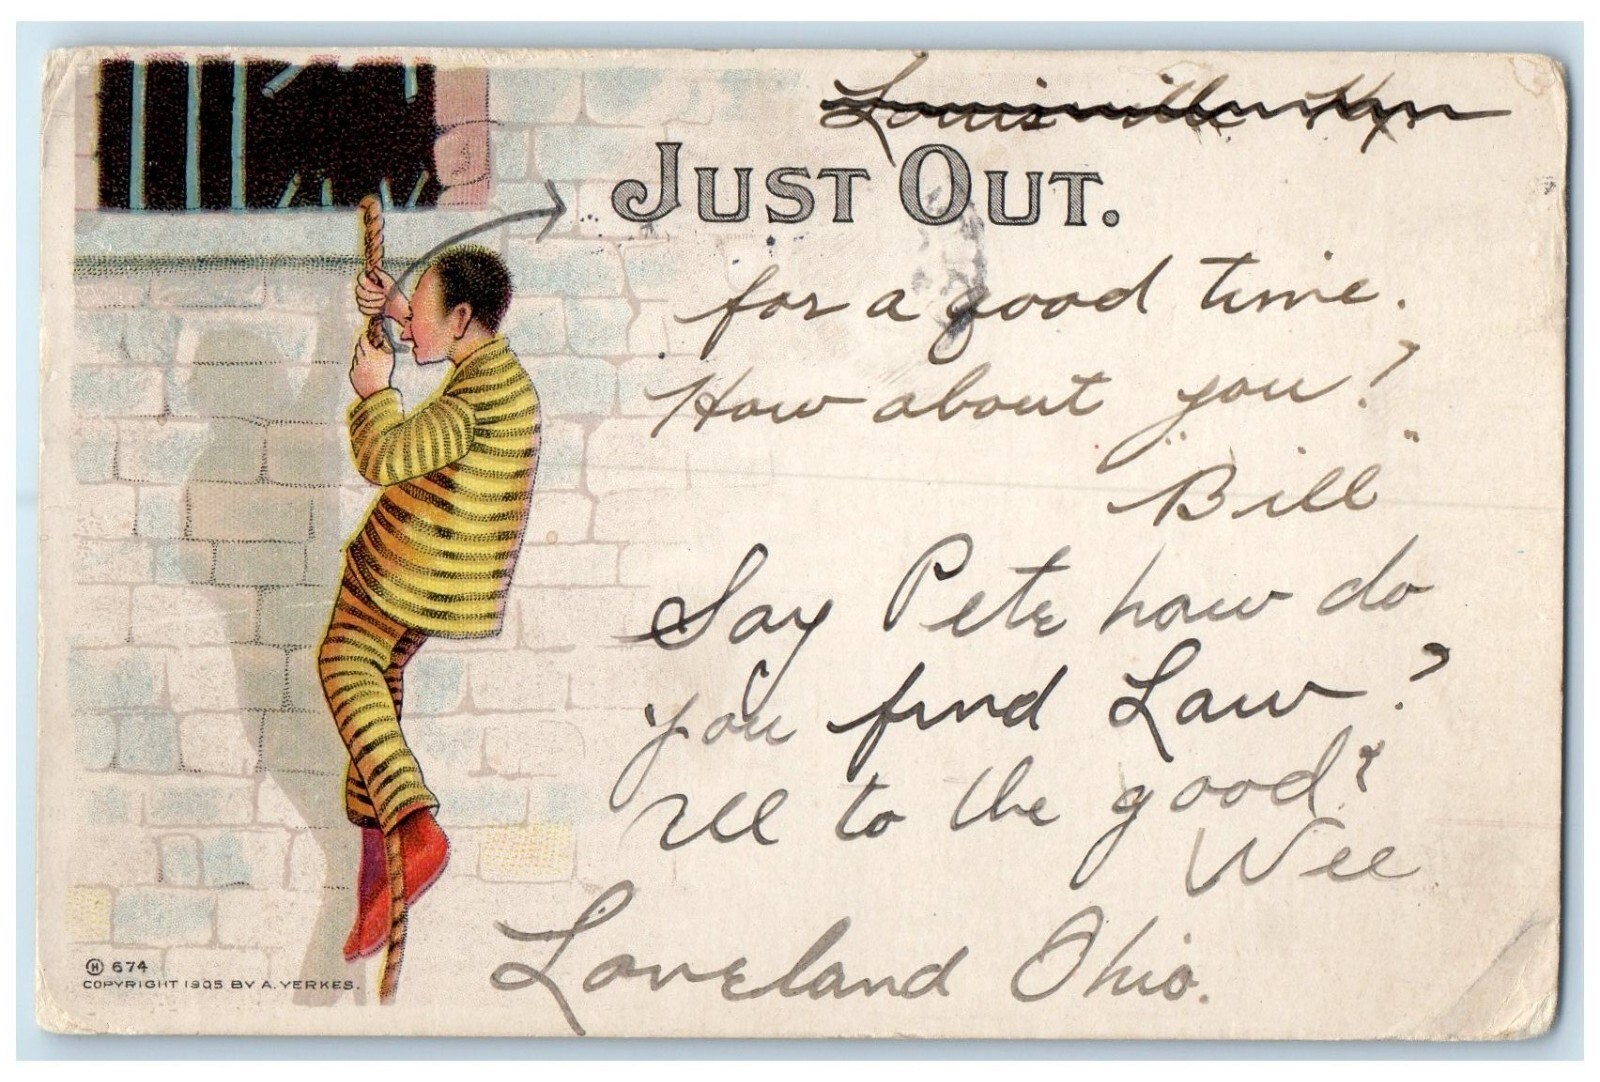 Louisville Ky.
JUST OUT.
for a good time.
How about you?
"Bill"
Say Pete how do
you find Law?
all to the good?
Wee
Loveland Ohio.
H 674
COPYRIGHT 1905 BY A. YERKES.